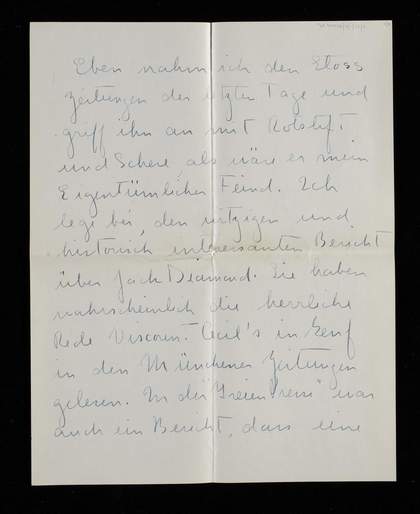 Eben nahm ich den Stoss
Zeitungen der letzten Tage und
griff ihn an mit Rotstift
und Schere als wäre er mein
Eigentümlicher Feind. Ich
lege bei, den witzigen und
historisch interessanten Bericht
über Jack Diamond. Sie haben
wahrscheinlich die herrliche
Rede Viscount Cecil's in Genf
in den Münchener Zeitungen
gelesen. In der "Freien Presse" war
auch ein Bericht, dass eine